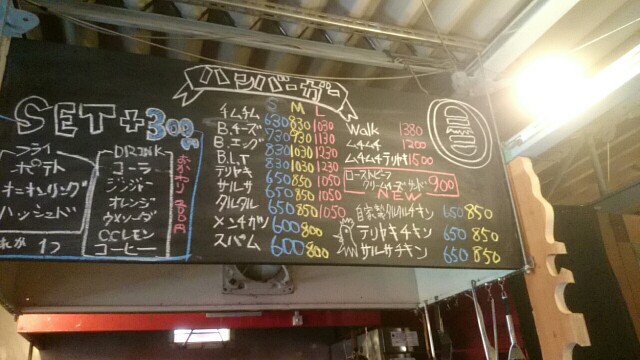 ハンバーガー
SET+300
フライ
ポテト
オニオンリング
ハッシュド
れか 1つ
DRINK
コーラ
ジンジャー
オレンジ
ウメソーダ
CCレモン
コーヒー
おかわり
S M L
チムチム 630 830 1030
B.チーズ 730 930 1130
B.エッグ 830 1030 1230
B.L.T 830 1030 1230
テリヤキ 650 850 1050
サルサ 650 850 1050
タルタル 650 850 1050
メンチカツ 600 800
スパム 600 800
Walk 1380
ムチムチ 1200
ムチムチテリヤキ 1500
ローストビーフ
クリームチーズサンド 900
NEW
自家製タルタルチキン 650 850
テリヤキチキン 650 850
サルサチキン 650 850